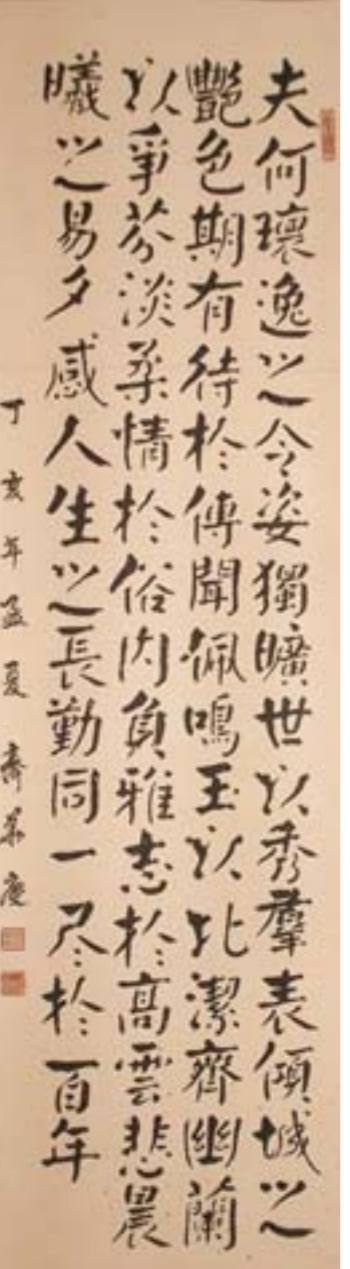 夫何瓌逸之令姿獨曠世以秀羣表傾城之
豔色期有待於傳聞佩鳴玉以比潔齊幽蘭
以爭芬淡柔情於俗内負雅志於高雲悲晨
曦之易夕感人生之長勤同一尽於百年
丁亥年孟夏